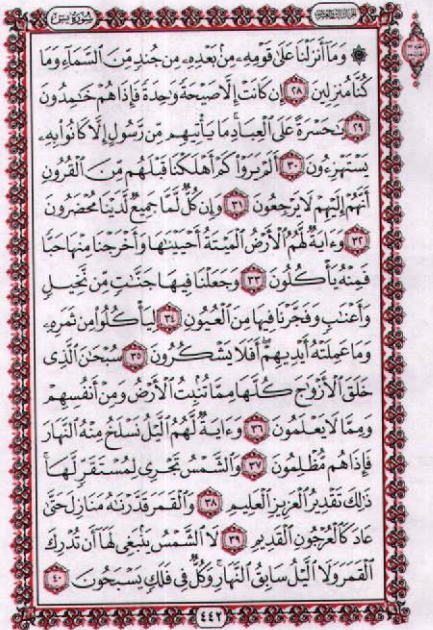 سُورَةُ يسٓ
۞ وَمَآ أَنزَلۡنَا عَلَىٰ قَوۡمِهِۦ مِنۢ بَعۡدِهِۦ مِن جُندٖ مِّنَ ٱلسَّمَآءِ وَمَا
كُنَّا مُنزِلِينَ ٢٨ إِن كَانَتۡ إِلَّا صَيۡحَةٗ وَٰحِدَةٗ فَإِذَا هُمۡ خَٰمِدُونَ
٢٩ يَٰحَسۡرَةً عَلَى ٱلۡعِبَادِۚ مَا يَأۡتِيهِم مِّن رَّسُولٍ إِلَّا كَانُواْ بِهِۦ
يَسۡتَهۡزِءُونَ ٣٠ أَلَمۡ يَرَوۡاْ كَمۡ أَهۡلَكۡنَا قَبۡلَهُم مِّنَ ٱلۡقُرُونِ
أَنَّهُمۡ إِلَيۡهِمۡ لَا يَرۡجِعُونَ ٣١ وَإِن كُلّٞ لَّمَّا جَمِيعٞ لَّدَيۡنَا مُحۡضَرُونَ
٣٢ وَءَايَةٞ لَّهُمُ ٱلۡأَرۡضُ ٱلۡمَيۡتَةُ أَحۡيَيۡنَٰهَا وَأَخۡرَجۡنَا مِنۡهَا حَبّٗا
فَمِنۡهُ يَأۡكُلُونَ ٣٣ وَجَعَلۡنَا فِيهَا جَنَّٰتٖ مِّن نَّخِيلٖ
وَأَعۡنَٰبٖ وَفَجَّرۡنَا فِيهَا مِنَ ٱلۡعُيُونِ ٣٤ لِيَأۡكُلُواْ مِن ثَمَرِهِۦ
وَمَا عَمِلَتۡهُ أَيۡدِيهِمۡۚ أَفَلَا يَشۡكُرُونَ ٣٥ سُبۡحَٰنَ ٱلَّذِي
خَلَقَ ٱلۡأَزۡوَٰجَ كُلَّهَا مِمَّا تُنۢبِتُ ٱلۡأَرۡضُ وَمِنۡ أَنفُسِهِمۡ
وَمِمَّا لَا يَعۡلَمُونَ ٣٦ وَءَايَةٞ لَّهُمُ ٱلَّيۡلُ نَسۡلَخُ مِنۡهُ ٱلنَّهَارَ
فَإِذَا هُم مُّظۡلِمُونَ ٣٧ وَٱلشَّمۡسُ تَجۡرِي لِمُسۡتَقَرّٖ لَّهَاۚ
ذَٰلِكَ تَقۡدِيرُ ٱلۡعَزِيزِ ٱلۡعَلِيمِ ٣٨ وَٱلۡقَمَرَ قَدَّرۡنَٰهُ مَنَازِلَ حَتَّىٰ
عَادَ كَٱلۡعُرۡجُونِ ٱلۡقَدِيمِ ٣٩ لَا ٱلشَّمۡسُ يَنۢبَغِي لَهَآ أَن تُدۡرِكَ
ٱلۡقَمَرَ وَلَا ٱلَّيۡلُ سَابِقُ ٱلنَّهَارِۚ وَكُلّٞ فِي فَلَكٖ يَسۡبَحُونَ ٤٠
٤٤٢